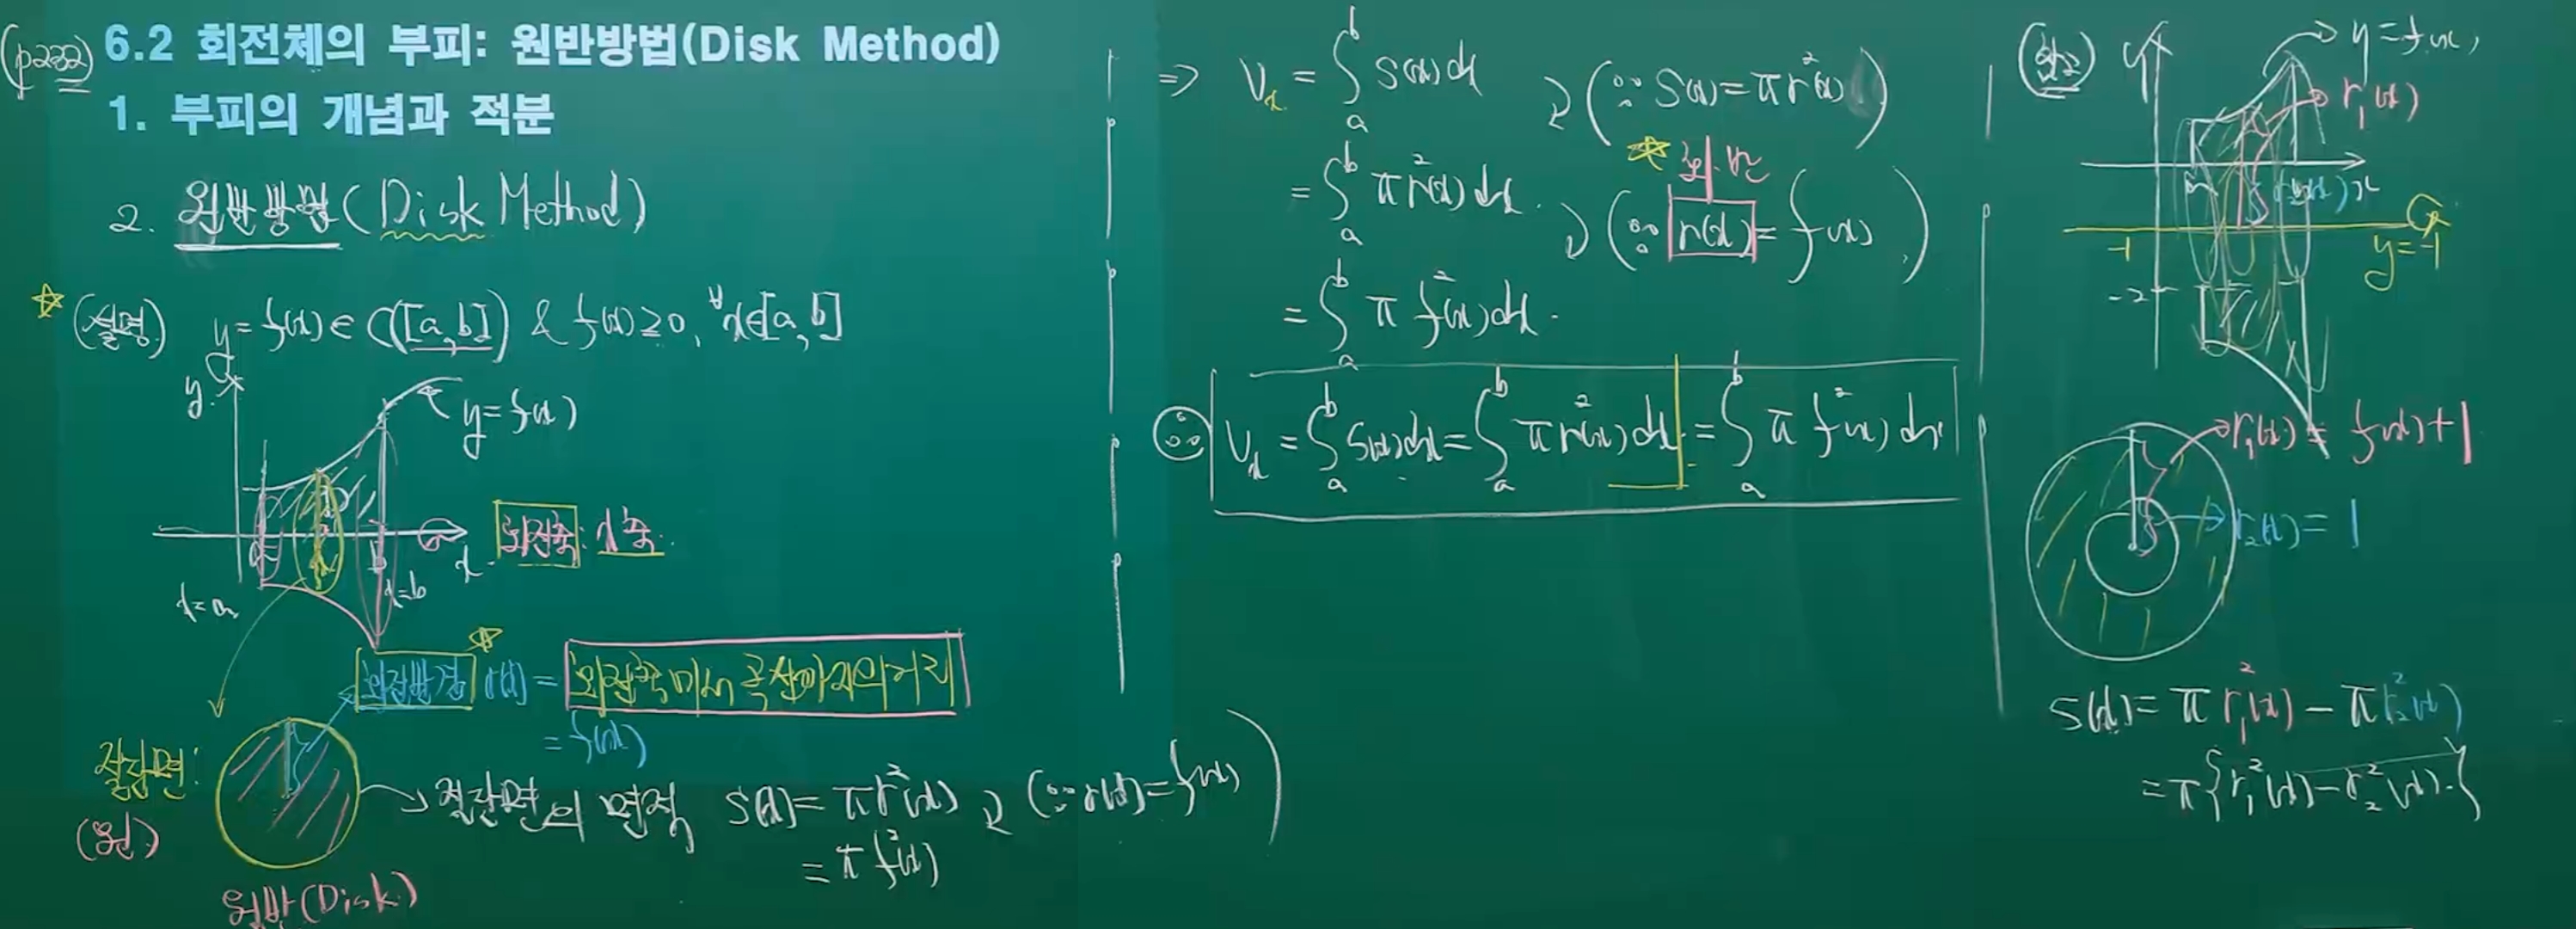 (p232)
6.2 회전체의 부피: 원반방법(Disk Method)
1. 부피의 개념과 적분
2. 원반방법(Disk Method)
(설명) y=f(x)∈C([a,b]) & f(x)≥0, ∀x∈[a,b]
y
y=f(x)
회전축: x축.
x
x=a
x=b
회전반경 r(x) = 회전축에서 곡선까지의 거리
= f(x)
절단면:
(원)
원반(Disk)
절단면의 면적 S(x)=πr²(x) (∵ r(x)=f(x))
= πf²(x)
⇒ Vx = ∫ₐᵇ S(x)dx (∵ S(x)=πr²(x))
= ∫ₐᵇ πr²(x)dx. (∵ r(x)=f(x))
= ∫ₐᵇ πf²(x)dx.
∴ Vx = ∫ₐᵇ S(x)dx = ∫ₐᵇ πr²(x)dx = ∫ₐᵇ πf²(x)dx
y
y=f(x)
r₁(x)
a
b
r₂(x)
x
-1
y=-1
-2
r₁(x) = f(x)+1
r₂(x) = 1
S(x) = πr₁²(x) - πr₂²(x)
= π{r₁²(x) - r₂²(x)}